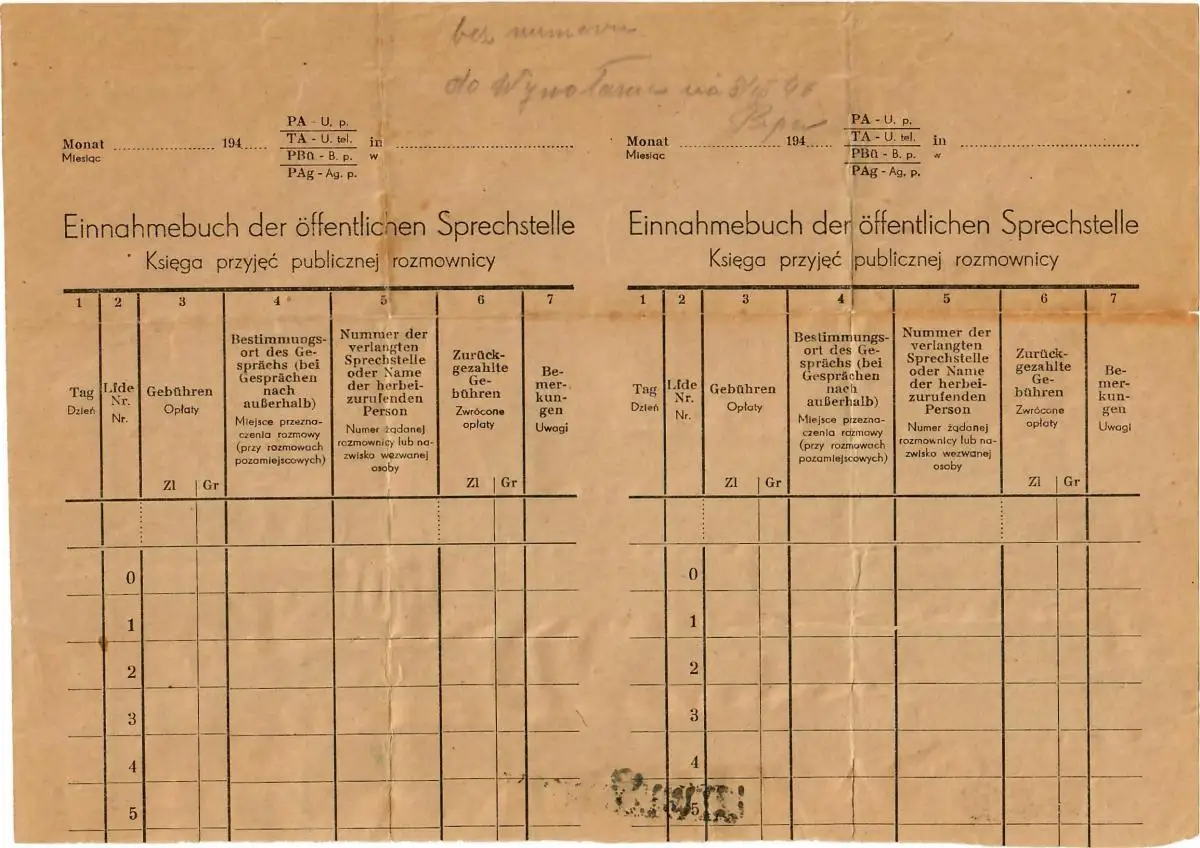 bez numeru
do
Monat 194 in
Miesiąc w
PA - U. p.
TA - U. tel.
PBü - B. p.
PAg - Ag. p.
Einnahmebuch der öffentlichen Sprechstelle
Księga przyjęć publicznej rozmownicy
1 2 3 4 5 6 7
Tag
Dzień
Lfde
Nr.
Nr.
Gebühren
Opłaty
Zl Gr
Bestimmungs-
ort des Ge-
sprächs (bei
Gesprächen
nach
außerhalb)
Miejsce przezna-
czenia rozmowy
(przy rozmowach
pozamiejscowych)
Nummer der
verlangten
Sprechstelle
oder Name
der herbei-
zurufenden
Person
Numer żądanej
rozmownicy lub na-
zwisko wezwanej
osoby
Zurück-
gezahlte
Ge-
bühren
Zwrócone
opłaty
Zl Gr
Be-
mer-
kun-
gen
Uwagi
0
1
2
3
4
5
Monat 194 in
Miesiąc w
PA - U. p.
TA - U. tel.
PBü - B. p.
PAg - Ag. p.
Einnahmebuch der öffentlichen Sprechstelle
Księga przyjęć publicznej rozmownicy
1 2 3 4 5 6 7
Tag
Dzień
Lfde
Nr.
Nr.
Gebühren
Opłaty
Zl Gr
Bestimmungs-
ort des Ge-
sprächs (bei
Gesprächen
nach
außerhalb)
Miejsce przezna-
czenia rozmowy
(przy rozmowach
pozamiejscowych)
Nummer der
verlangten
Sprechstelle
oder Name
der herbei-
zurufenden
Person
Numer żądanej
rozmownicy lub na-
zwisko wezwanej
osoby
Zurück-
gezahlte
Ge-
bühren
Zwrócone
opłaty
Zl Gr
Be-
mer-
kun-
gen
Uwagi
0
1
2
3
4
5